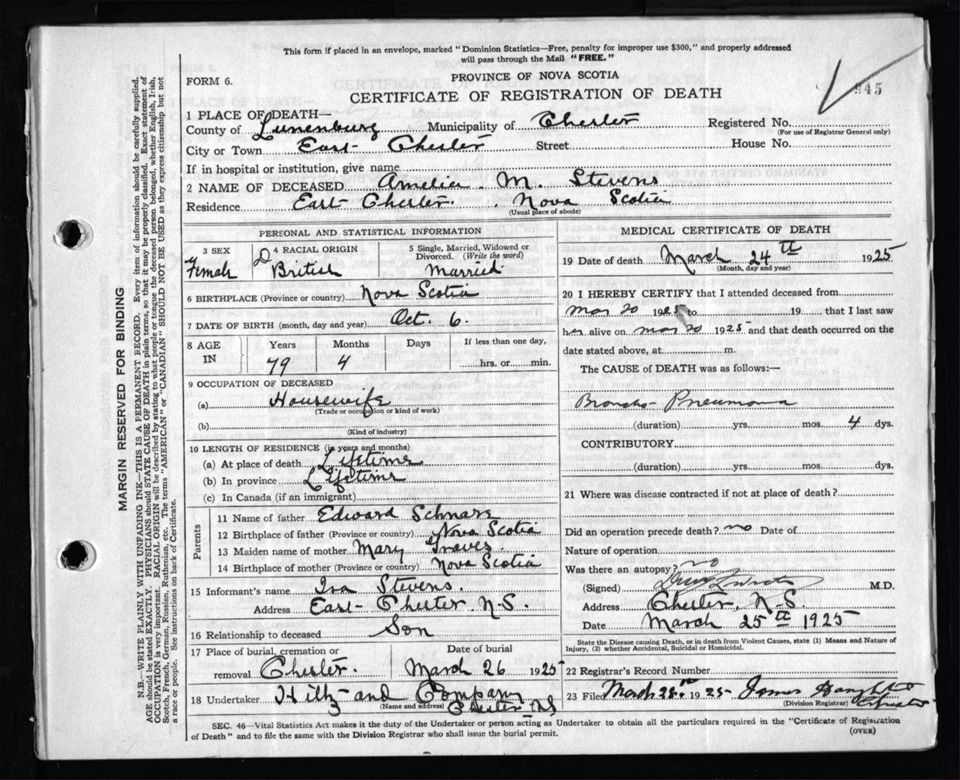 This form if placed in an envelope, marked "Dominion Statistics—Free, penalty for improper use $300," and properly addressed
will pass through the Mail "FREE."
FORM 6.
PROVINCE OF NOVA SCOTIA
CERTIFICATE OF REGISTRATION OF DEATH
945
1 PLACE OF DEATH—
County of Lunenburg Municipality of Chester Registered No.
(For use of Registrar General only)
City or Town East Chester Street House No.
If in hospital or institution, give name
2 NAME OF DECEASED Amelia M. Stevens
Residence East Chester. Nova Scotia
(Usual place of abode)
PERSONAL AND STATISTICAL INFORMATION
3 SEX Female
4 RACIAL ORIGIN British
5 Single, Married, Widowed or
Divorced. (Write the word)
Married
6 BIRTHPLACE (Province or country) Nova Scotia
7 DATE OF BIRTH (month, day and year) Oct. 6.
8 AGE IN Years Months Days If less than one day,
79 4 hrs. or min.
9 OCCUPATION OF DECEASED
(a) Housewife
(Trade or occupation or kind of work)
(b)
(Kind of industry)
10 LENGTH OF RESIDENCE (in years and months)
(a) At place of death Lifetime
(b) In province Lifetime
(c) In Canada (if an immigrant)
Parents
11 Name of father Edward Schnare
12 Birthplace of father (Province or country) Nova Scotia
13 Maiden name of mother Mary
14 Birthplace of mother (Province or country) Nova Scotia
15 Informant's name Ira Stevens.
Address East Chester, N.S.
16 Relationship to deceased Son
17 Place of burial, cremation or
removal Chester. March 26 1925
18 Undertaker Hiltz and Company
(Name and address) Chester NS
MEDICAL CERTIFICATE OF DEATH
19 Date of death March 24th 1925
(Month, day and year)
20 I HEREBY CERTIFY that I attended deceased from
Mar 20 1925 to 19 that I last saw
her alive on Mar 20 1925 and that death occurred on the
date stated above, at m.
The CAUSE of DEATH was as follows:—
Broncho-Pneumonia
(duration) yrs. mos. 4 dys.
CONTRIBUTORY
(duration) yrs. mos. dys.
21 Where was disease contracted if not at place of death?
Did an operation precede death? no Date of
Nature of operation
Was there an autopsy? no
(Signed) M.D.
Address Chester, N.S.
Date March 25th 1925
State the Disease causing Death, or in death from Violent Causes, state (1) Means and Nature of
Injury, (2) whether Accidental, Suicidal or Homicidal.
22 Registrar's Record Number
23 Filed March 1925 James
(Division Registrar) Chester
SEC. 46—Vital Statistics Act makes it the duty of the Undertaker or person acting as Undertaker to obtain all the particulars required in the "Certificate of Registration
of Death" and to file the same with the Division Registrar who shall issue the burial permit. (OVER)
MARGIN RESERVED FOR BINDING
N.B.—WRITE PLAINLY WITH UNFADING INK—THIS IS A PERMANENT RECORD. Every item of information should be carefully supplied.
AGE should be stated EXACTLY. PHYSICIANS should STATE CAUSE OF DEATH in plain terms, so that it may be properly classified. Exact statement of
OCCUPATION is very important. RACIAL ORIGIN will be described by stating to what people or tongue the deceased person belonged, whether English, Irish,
Scotch, French, German, Russian, Ruthenian, etc. The terms "AMERICAN" or "CANADIAN" SHOULD NOT BE USED as they express citizenship but not
a race or people. See instructions on back of Certificate.